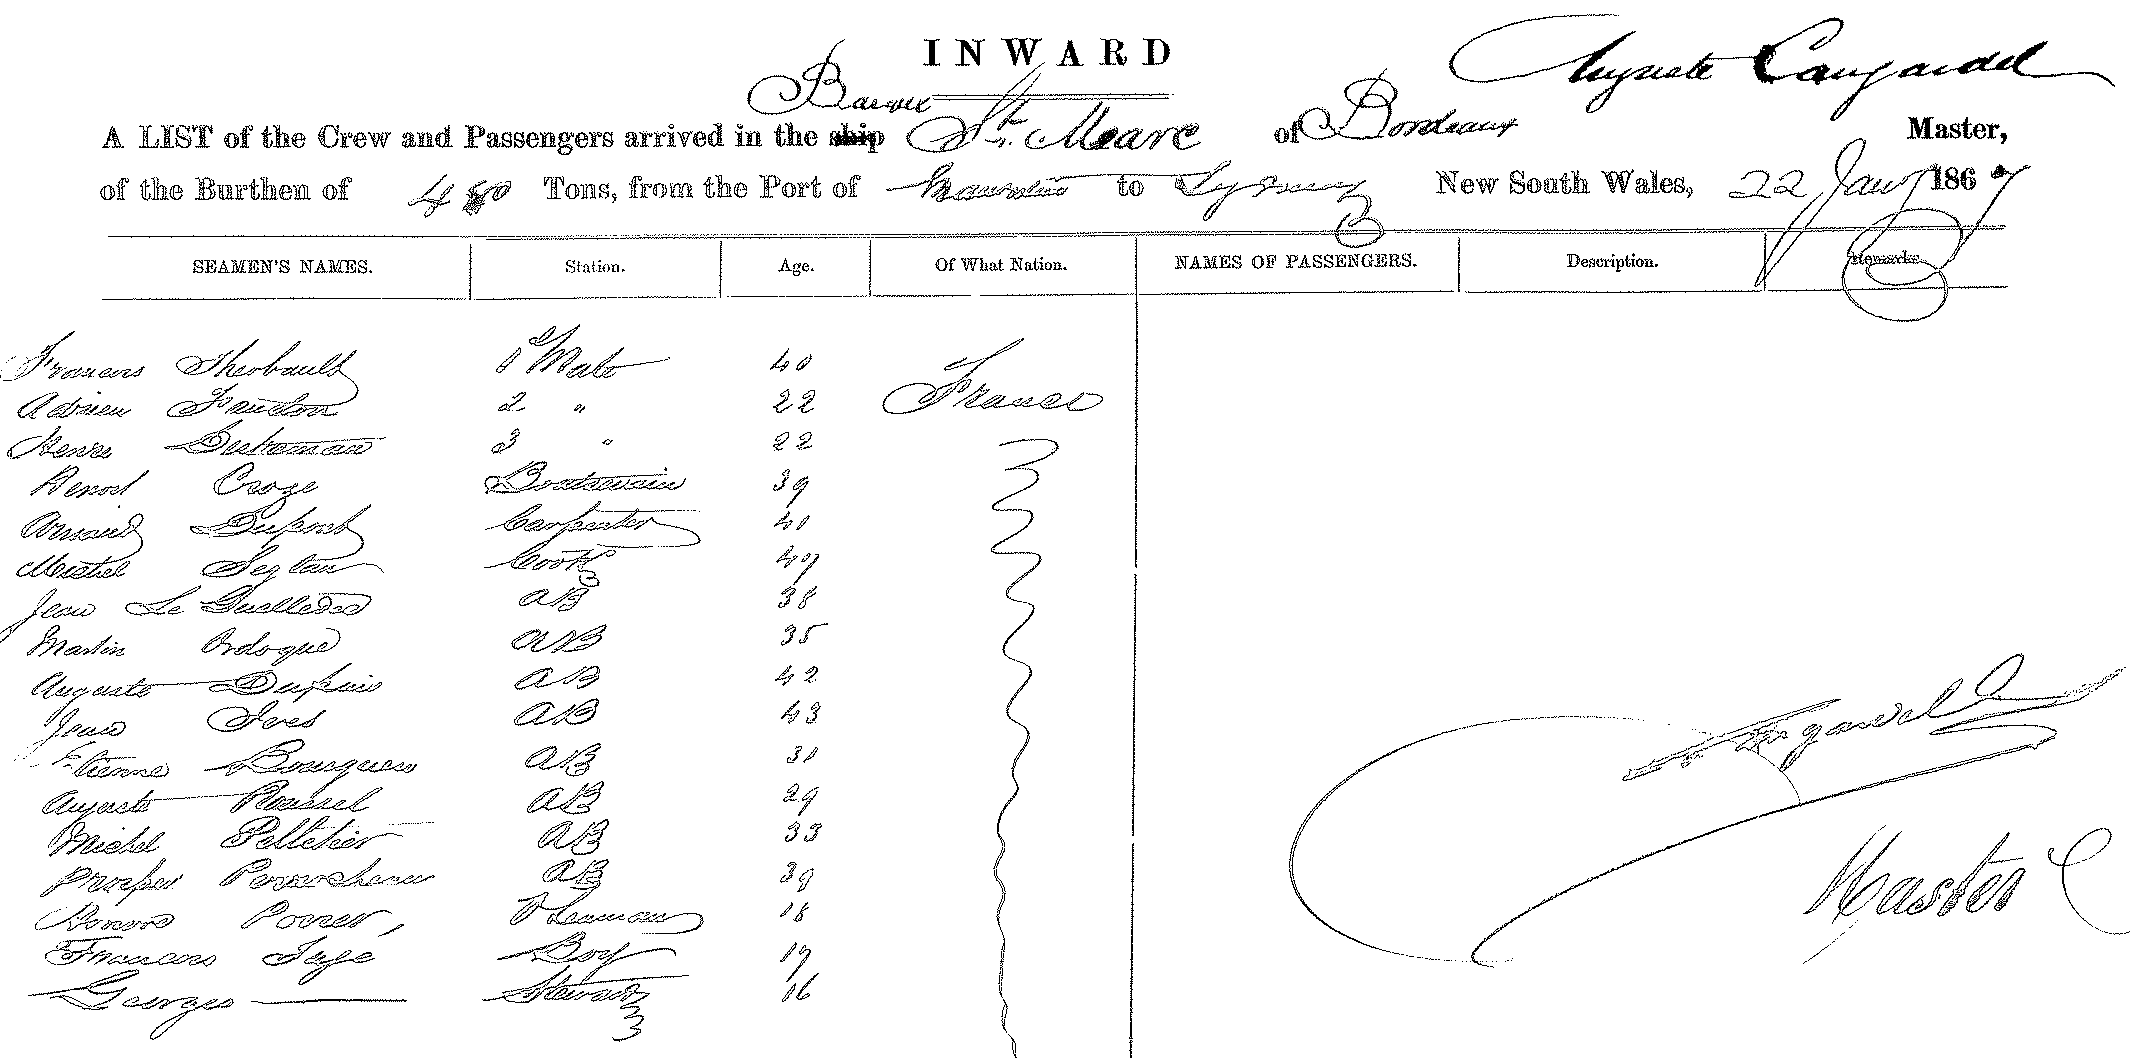 INWARD
Auguste
Barque
A LIST of the Crew and Passengers arrived in the ship St. Marc of Bordeaux Master,
of the Burthen of 480 Tons, from the Port of Mauritius to Sydney New South Wales, 22 Jany 1867
SEAMEN'S NAMES. Station. Age. Of What Nation. NAMES OF PASSENGERS. Description. Remarks
Francois Theobault 1st Mate 40
Adrien 2 " 22 France
Henre 3 " 22
Benoit Croze Boatswain 39
Arnaud Dupont Carpenter 40
Michel Cook 49
Jean Le AB 38
Martin Ordoque AB 35
Auguste Dupuis AB 42
Jean Ives AB 43
Etienne AB 30
Auguste Roussel AB 29
Michel Pelletier AB 33
Prosper AB 39
Honore Poirier, O Seaman 18
Francois Boy 17
Georges Steward 16
Master